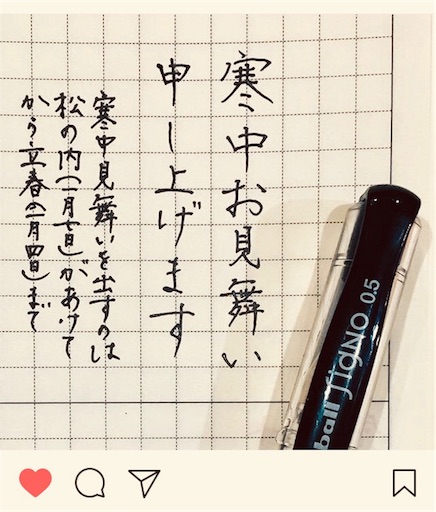 寒中お見舞い
申し上げます
寒中見舞いを出すのは
松の内(一月七日)があけて
から立春(二月四日)まで
ball SigNO 0.5